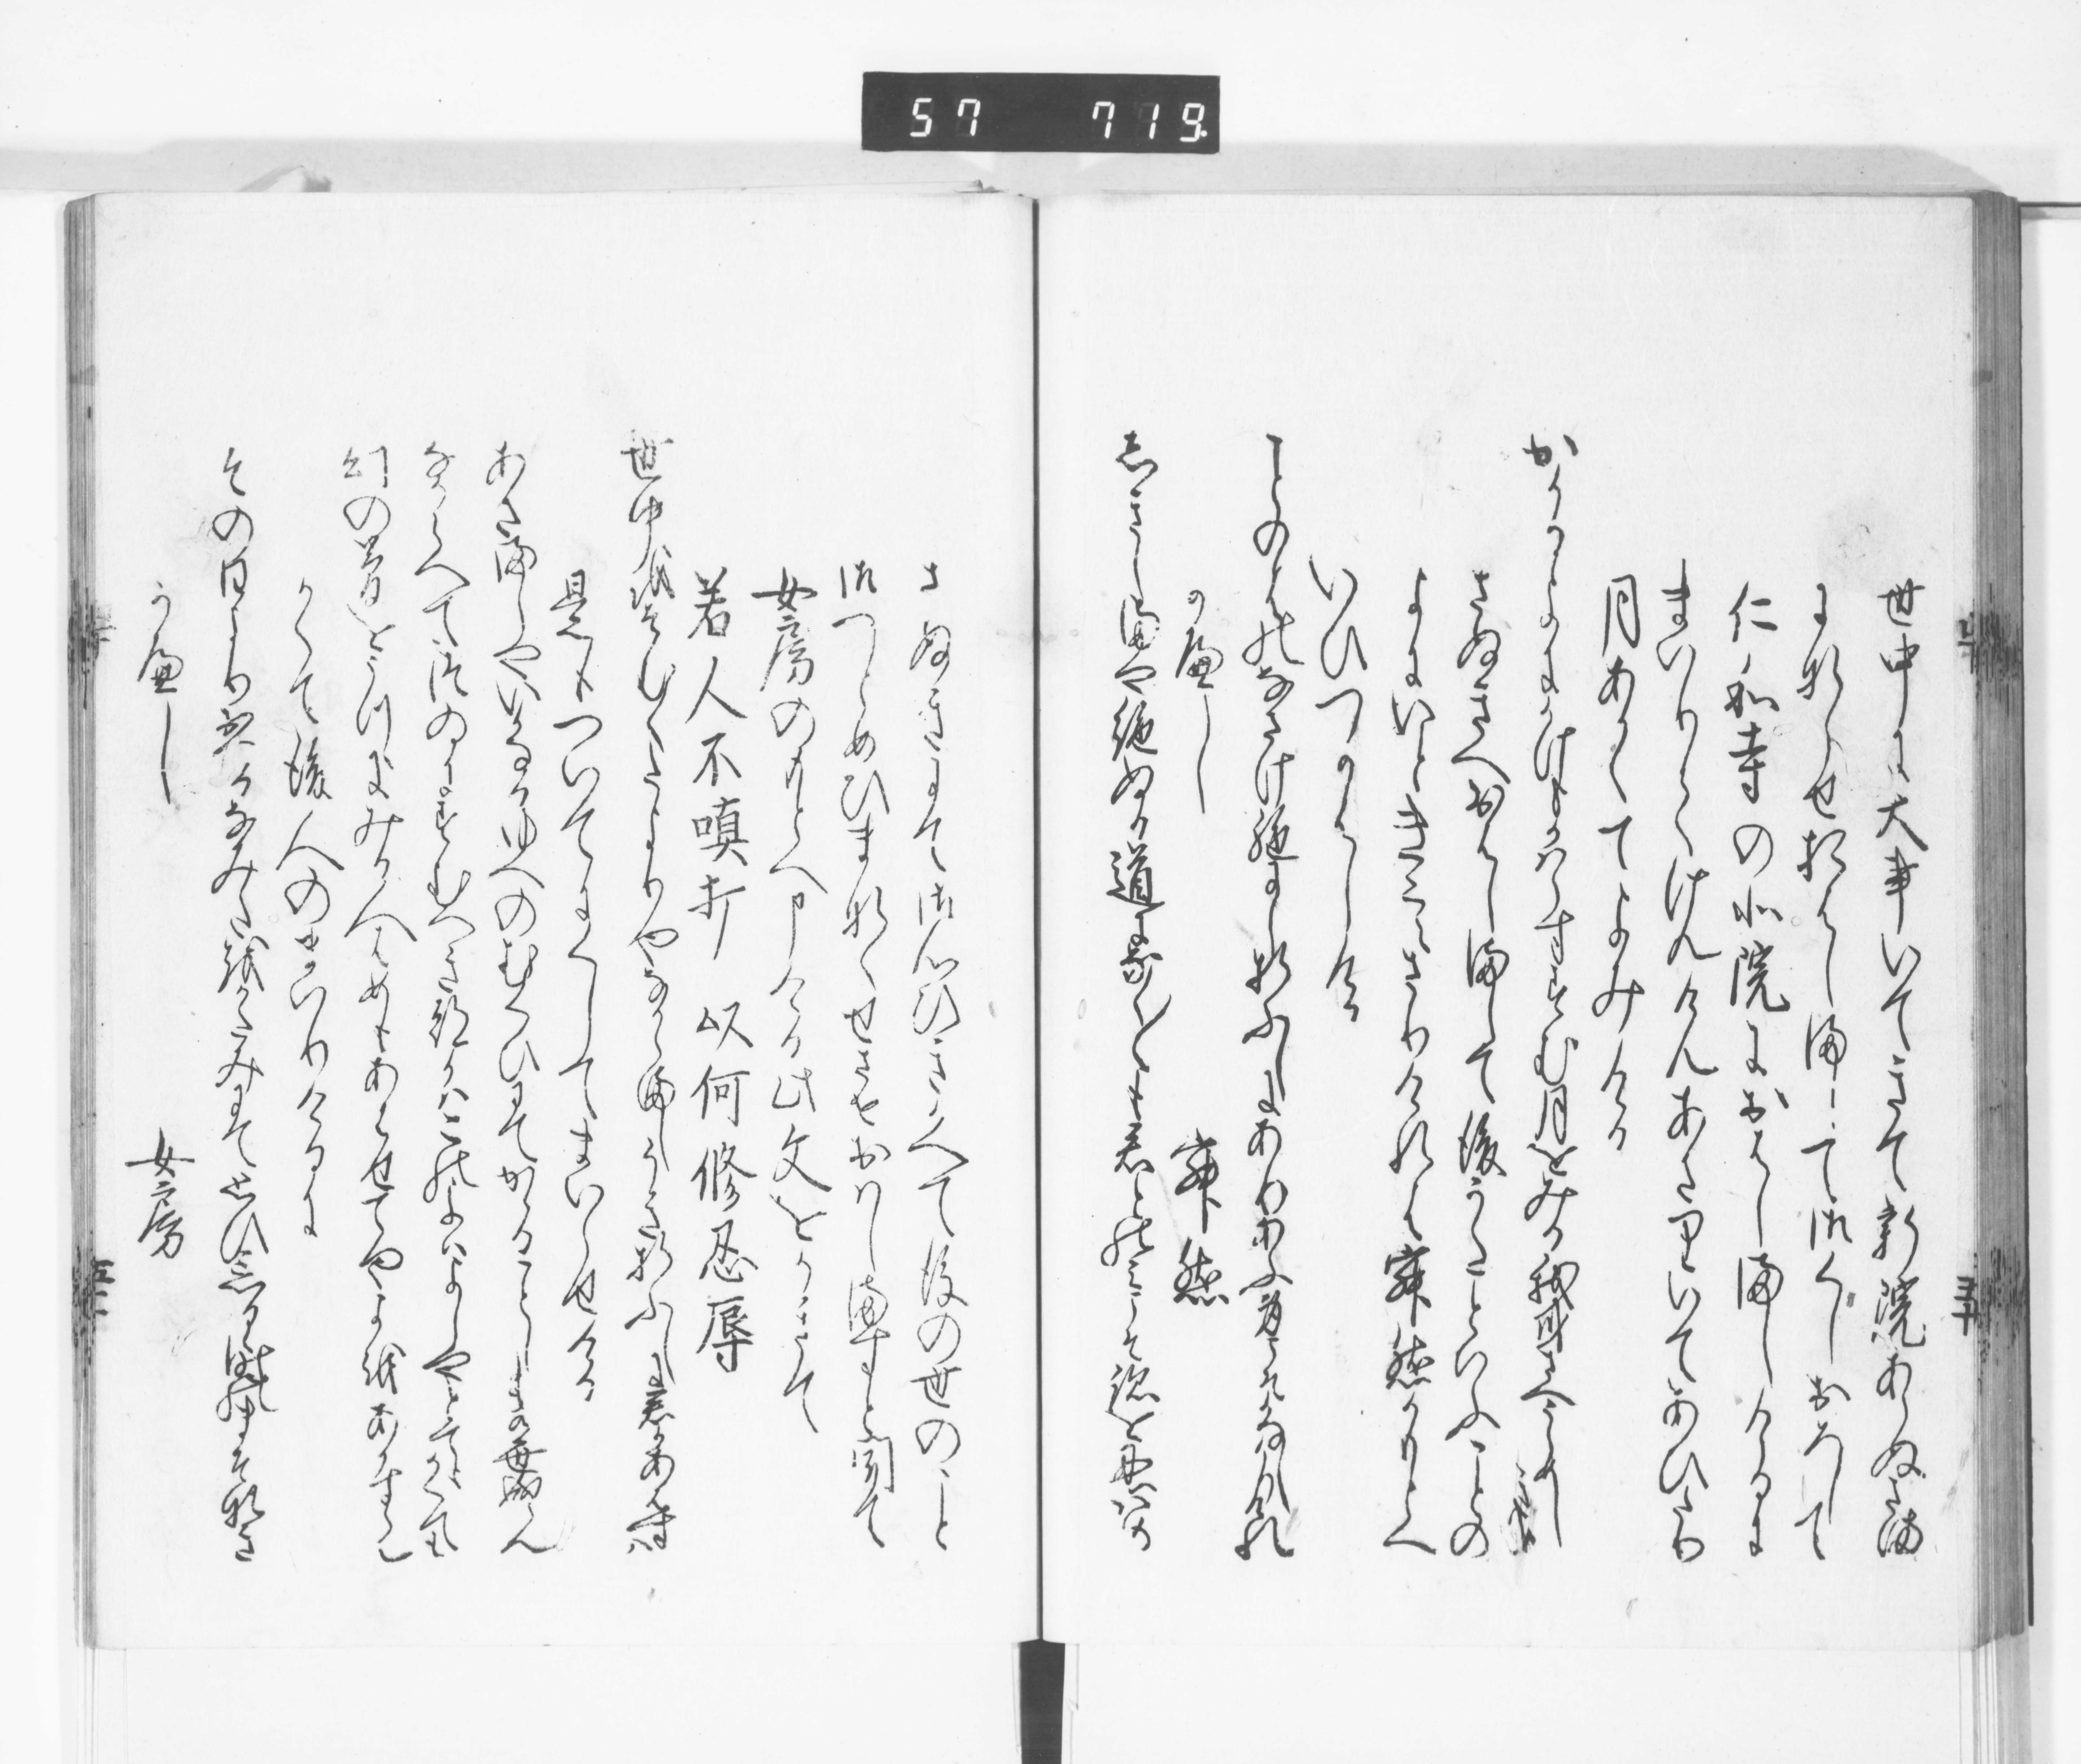 57 719.
世中に大事いてきて新院あらぬさま
にならせおはしまして御くしおろして
仁和寺の北院におはしましけるに
まいりてけんけんあさりいてあひたり
月あかくてよみける
かゝるよにかけもかはらすすむ月をみる我身さへうらめしきかな
さぬきへおはしまして後うたといふことの
よにいときこえさりけれは寂然かもとへ
いひつかはしける
ことのはのなさけ絶にしおりふしにありあふ身こそかなしかりけれ
かへし
寂然
しきしまや絶ぬる道になく〳〵も君とのみこそ跡を忍はめ
さぬきにて御心ひきかへて後の世のこと
御つとめひまなくせさせおはしますと聞て
女房のもとへ申ける此文をかきて
若人不嗔打 以何修忍辱
世中をそむくたよりやなからましうきおりふしに君あはすは
是もついてにくしてまいらせける
あさましやいかなるゆへのむくひにてかゝることしもある世成らん
なからへてつゐにすむへき都かは此世はよしやとてもかくても
幻の夢をうつゝにみる人はめもあはせてやよをあかすらん
かくて後人のまいりけるに
その日より おつるなみたをかたみにて思ひ忘るゝ時のまそなき
かへし
女房